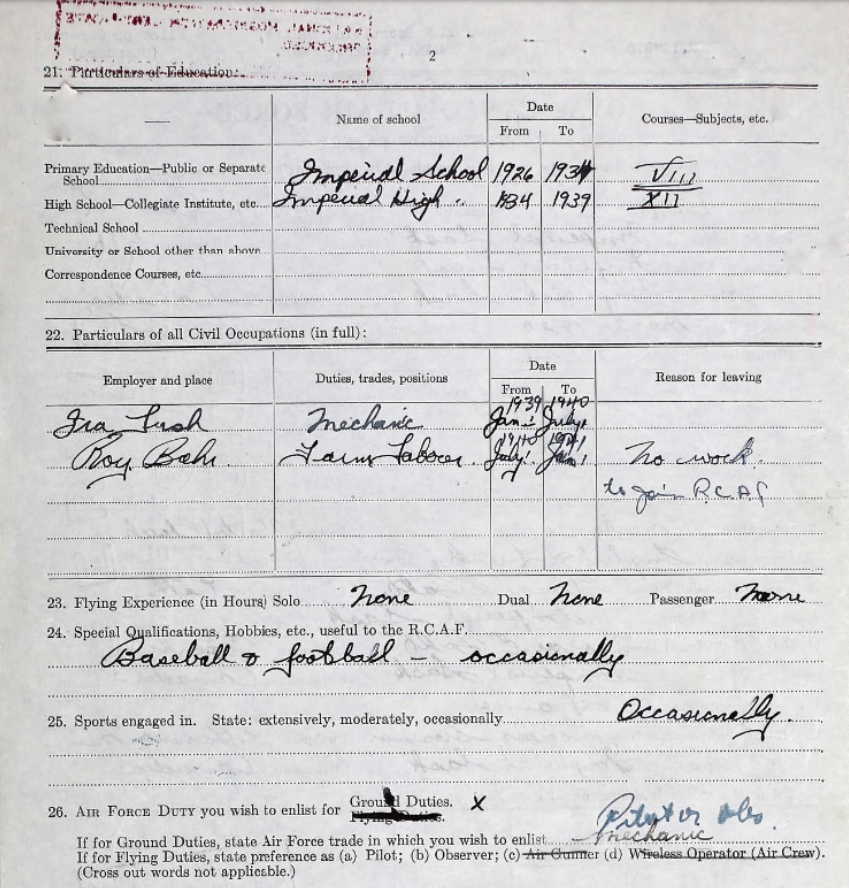 2
21. Particulars of Education:
Name of school
Date
From
To
Courses—Subjects, etc.
Primary Education—Public or Separate
School
Imperial School 1926 1934 VIII
High School—Collegiate Institute, etc. Imperial High " 1934 1939 XII
Technical School
University or School other than above
Correspondence Courses, etc.
22. Particulars of all Civil Occupations (in full):
Employer and place
Duties, trades, positions
Date
From
To
Reason for leaving
1939 1940
Ira Lush Mechanic Jan July
1940 1941
Roy Bahr. Farm Laborer. July Jan No work.
to join R.C.A.F
23. Flying Experience (in Hours) Solo None Dual None Passenger None
24. Special Qualifications, Hobbies, etc., useful to the R.C.A.F.
Baseball & football – occasionally
25. Sports engaged in. State: extensively, moderately, occasionally Occasionally.
26. AIR FORCE DUTY you wish to enlist for Ground Duties. X
Flying Duties.
Pilot or Obs.
If for Ground Duties, state Air Force trade in which you wish to enlist mechanic
If for Flying Duties, state preference as (a) Pilot; (b) Observer; (c) Air Gunner (d) Wireless Operator (Air Crew).
(Cross out words not applicable.)